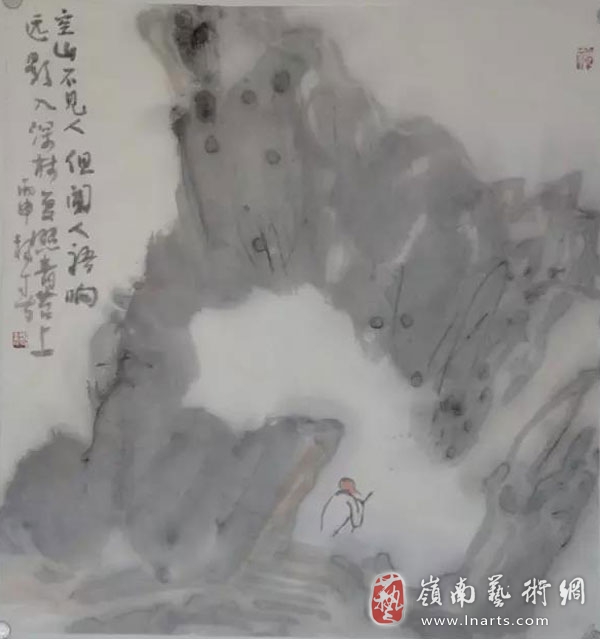 空山不见人但闻人语响
远影入深林复照青苔上
丙申
嶺南藝術網
www.lnarts.com